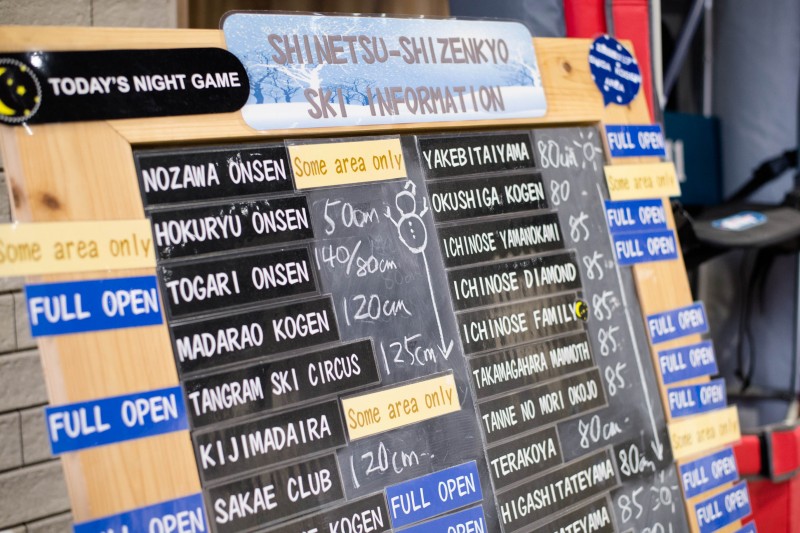 SHINETSU-SHIZENKYO
SKI INFORMATION
TODAY'S NIGHT GAME
NOZAWA ONSEN Some area only
Some area only HOKURYU ONSEN 50cm
FULL OPEN TOGARI ONSEN 140/80cm
MADARAO KOGEN 120cm
FULL OPEN TANGRAM SKI CIRCUS 125cm
KIJIMADAIRA Some area only
FULL OPEN SAKAE CLUB 120cm
KOGEN FULL OPEN
YAKEBITAIYAMA 80cm FULL OPEN
OKUSHIGA KOGEN 80 Some area only
ICHINOSE YAMANOKAMI 85 FULL OPEN
ICHINOSE DIAMOND 85 FULL OPEN
ICHINOSE FAMILY 85
TAMAGAHARA MAMMOTH 85 FULL OPEN
TANNE NO MORI OKOJO 85 FULL OPEN
TERAKOYA 80cm FULL OPEN
HIGASHITATEYAMA 80cm Some area only
85 FULL OPEN
FULL OPEN